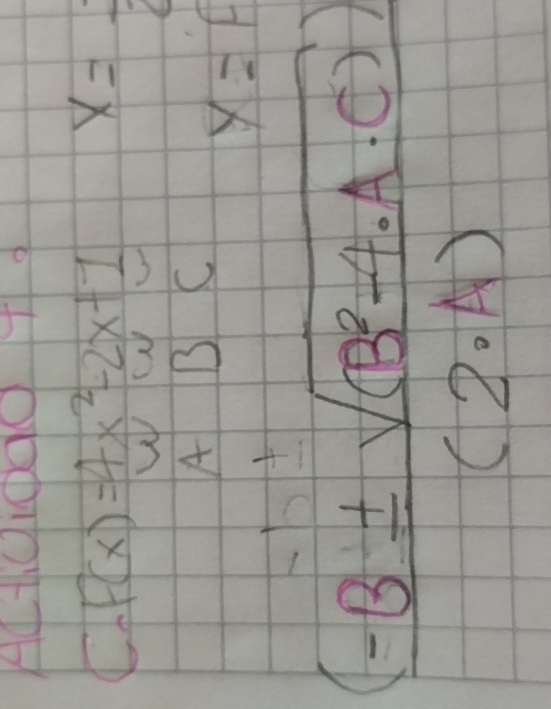 Actividad 4.
C. F(x)=4x²-2x+1 X=
A B C X=
-b ±
(-B ± √(B²-4·A·C))
(2·A)